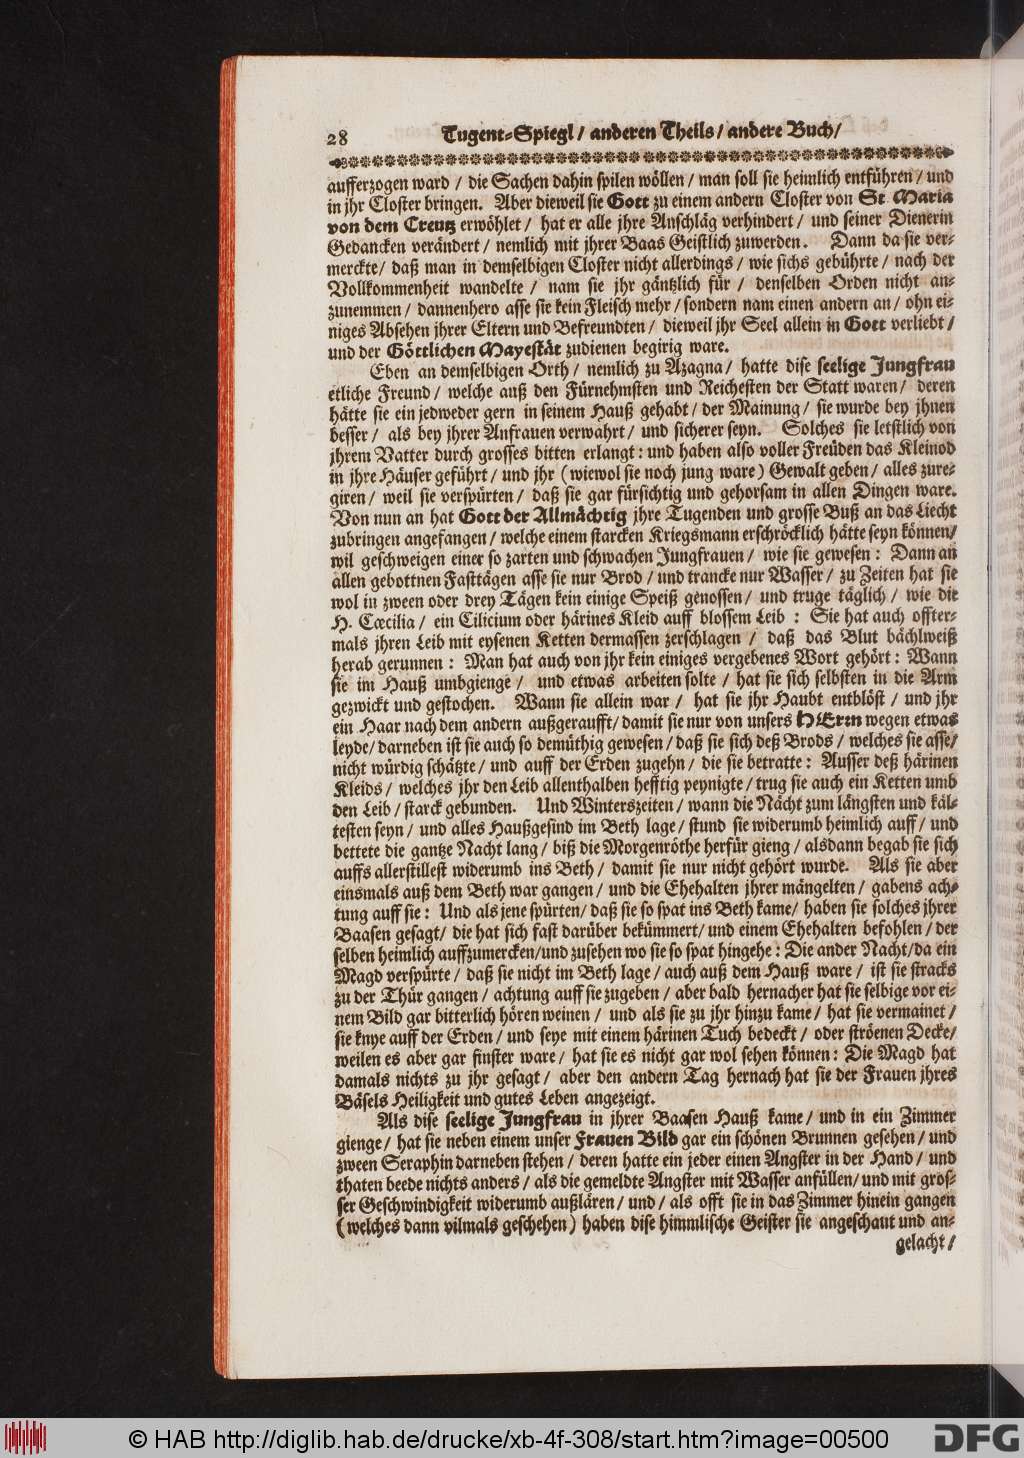 28 Tugent-Spiegl / anderen Theils / andere Buch /
aufferzogen ward / die Sachen dahin spilen wöllen / man soll sie heimlich entführen / und
in jhr Closter bringen. Aber dieweil sie Gott zu einem andern Closter von St Maria
von dem Creutz erwöhlet / hat er alle jhre Anschläg verhindert / und seiner Dienerin
Gedancken verändert / nemlich mit jhrer Baas Geistlich zuwerden. Dann da sie ver-
merckte / daß man in demselbigen Closter nicht allerdings / wie sichs gebührte / nach der
Vollkommenheit wandelte / nam sie jhr gäntzlich für / denselben Orden nicht an-
zunemmen / dannenhero asse sie kein Fleisch mehr / sondern nam einen andern an / ohn ei-
niges Absehen jhrer Eltern und Befreundten / dieweil jhr Seel allein in Gott verliebt /
und der Göttlichen Mayestät zudienen begirig ware.
Eben an demselbigen Orth / nemlich zu Azagna / hatte dise seelige Jungfrau
etliche Freund / welche auß den Fürnehmsten und Reichesten der Statt waren / deren
hätte sie ein jedweder gern in seinem Hauß gehabt / der Mainung / sie wurde bey jhnen
besser / als bey jhrer Anfrauen verwahrt / und sicherer seyn. Solches sie letstlich von
jhrem Vatter durch grosses bitten erlangt : und haben also voller Freüden das Kleinod
in jhre Häuser geführt / und jhr (wiewol sie noch jung ware) Gewalt geben / alles zure-
giren / weil sie verspürten / daß sie gar fürsichtig und gehorsam in allen Dingen ware.
Von nun an hat Gott der Allmächtig jhre Tugenden und grosse Buß an das Liecht
zubringen angefangen / welche einem starcken Kriegsmann erschröcklich hätte seyn können /
wil geschweigen einer so zarten und schwachen Jungfrauen / wie sie gewesen : Dann an
allen gebottnen Fasttägen asse sie nur Brod / und trancke nur Wasser / zu Zeiten hat sie
wol in zween oder drey Tägen kein einige Speiß genossen / und truge täglich / wie die
H. Cæcilia / ein Cilicium oder härines Kleid auff blossem Leib : Sie hat auch offter-
mals jhren Leib mit eysenen Ketten dermassen zerschlagen / daß das Blut bächlweiß
herab gerunnen : Man hat auch von jhr kein einiges vergebenes Wort gehört : Wann
sie im Hauß umbgienge / und etwas arbeiten solte / hat sie sich selbsten in die Arm
gezwickt und gestochen. Wann sie allein war / hat sie jhr Haubt entblöst / und jhr
ein Haar nach dem andern außgeraufft / damit sie nur von unsers HErrn wegen etwas
leyde / darneben ist sie auch so demüthig gewesen / daß sie sich deß Brods / welches sie asse /
nicht würdig schätzte / und auff der Erden zugehn / die sie betratte : Ausser deß härinen
Kleids / welches jhr den Leib allenthalben hefftig peynigte / trug sie auch ein Ketten umb
den Leib / starck gebunden. Und Winterszeiten / wann die Nächt zum längsten und käl-
testen seyn / und alles Haußgesind im Beth lage / stund sie widerumb heimlich auff / und
bettete die gantze Nacht lang / biß die Morgenröthe herfür gieng / alsdann begab sie sich
auffs allerstillest widerumb ins Beth / damit sie nur nicht gehört wurde. Als sie aber
einsmals auß dem Beth war gangen / und die Ehehalten jhrer mängelten / gabens ach-
tung auff sie : Und als jene spürten / daß sie so spat ins Beth kame / haben sie solches jhrer
Baasen gesagt / die hat sich fast darüber bekümmert / und einem Ehehalten befohlen / der
selben heimlich auffzumercken / und zusehen wo sie so spat hingehe : Die ander Nacht / da ein
Magd verspürte / daß sie nicht im Beth lage / auch auß dem Hauß ware / ist sie stracks
zu der Thür gangen / achtung auff sie zugeben / aber bald hernacher hat sie selbige vor ei-
nem Bild gar bitterlich hören weinen / und als sie zu jhr hinzu kame / hat sie vermainet /
sie knye auff der Erden / und seye mit einem härinen Tuch bedeckt / oder ströenen Decke /
weilen es aber gar finster ware / hat sie es nicht gar wol sehen können : Die Magd hat
damals nichts zu jhr gesagt / aber den andern Tag hernach hat sie der Frauen jhres
Bäsels Heiligkeit und gutes Leben angezeigt.
Als dise seelige Jungfrau in jhrer Baasen Hauß kame / und in ein Zimmer
gienge / hat sie neben einem unser Frauen Bild gar ein schönen Brunnen gesehen / und
zween Seraphin darneben stehen / deren hatte ein jeder einen Angster in der Hand / und
thaten beede nichts anders / als die gemeldte Angster mit Wasser anfüllen / und mit gros-
ser Geschwindigkeit widerumb außlären / und / als offt sie in das Zimmer hinein gangen
(welches dann vilmals geschehen) haben dise himmlische Geister sie angeschaut und an-
gelacht /
© HAB http://diglib.hab.de/drucke/xb-4f-308/start.htm?image=00500
DFG